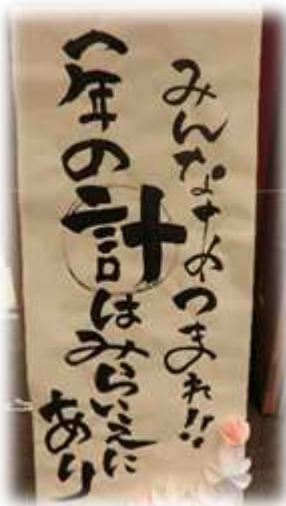 みんなあつまれ!!
一年の計はみらいえに
あり